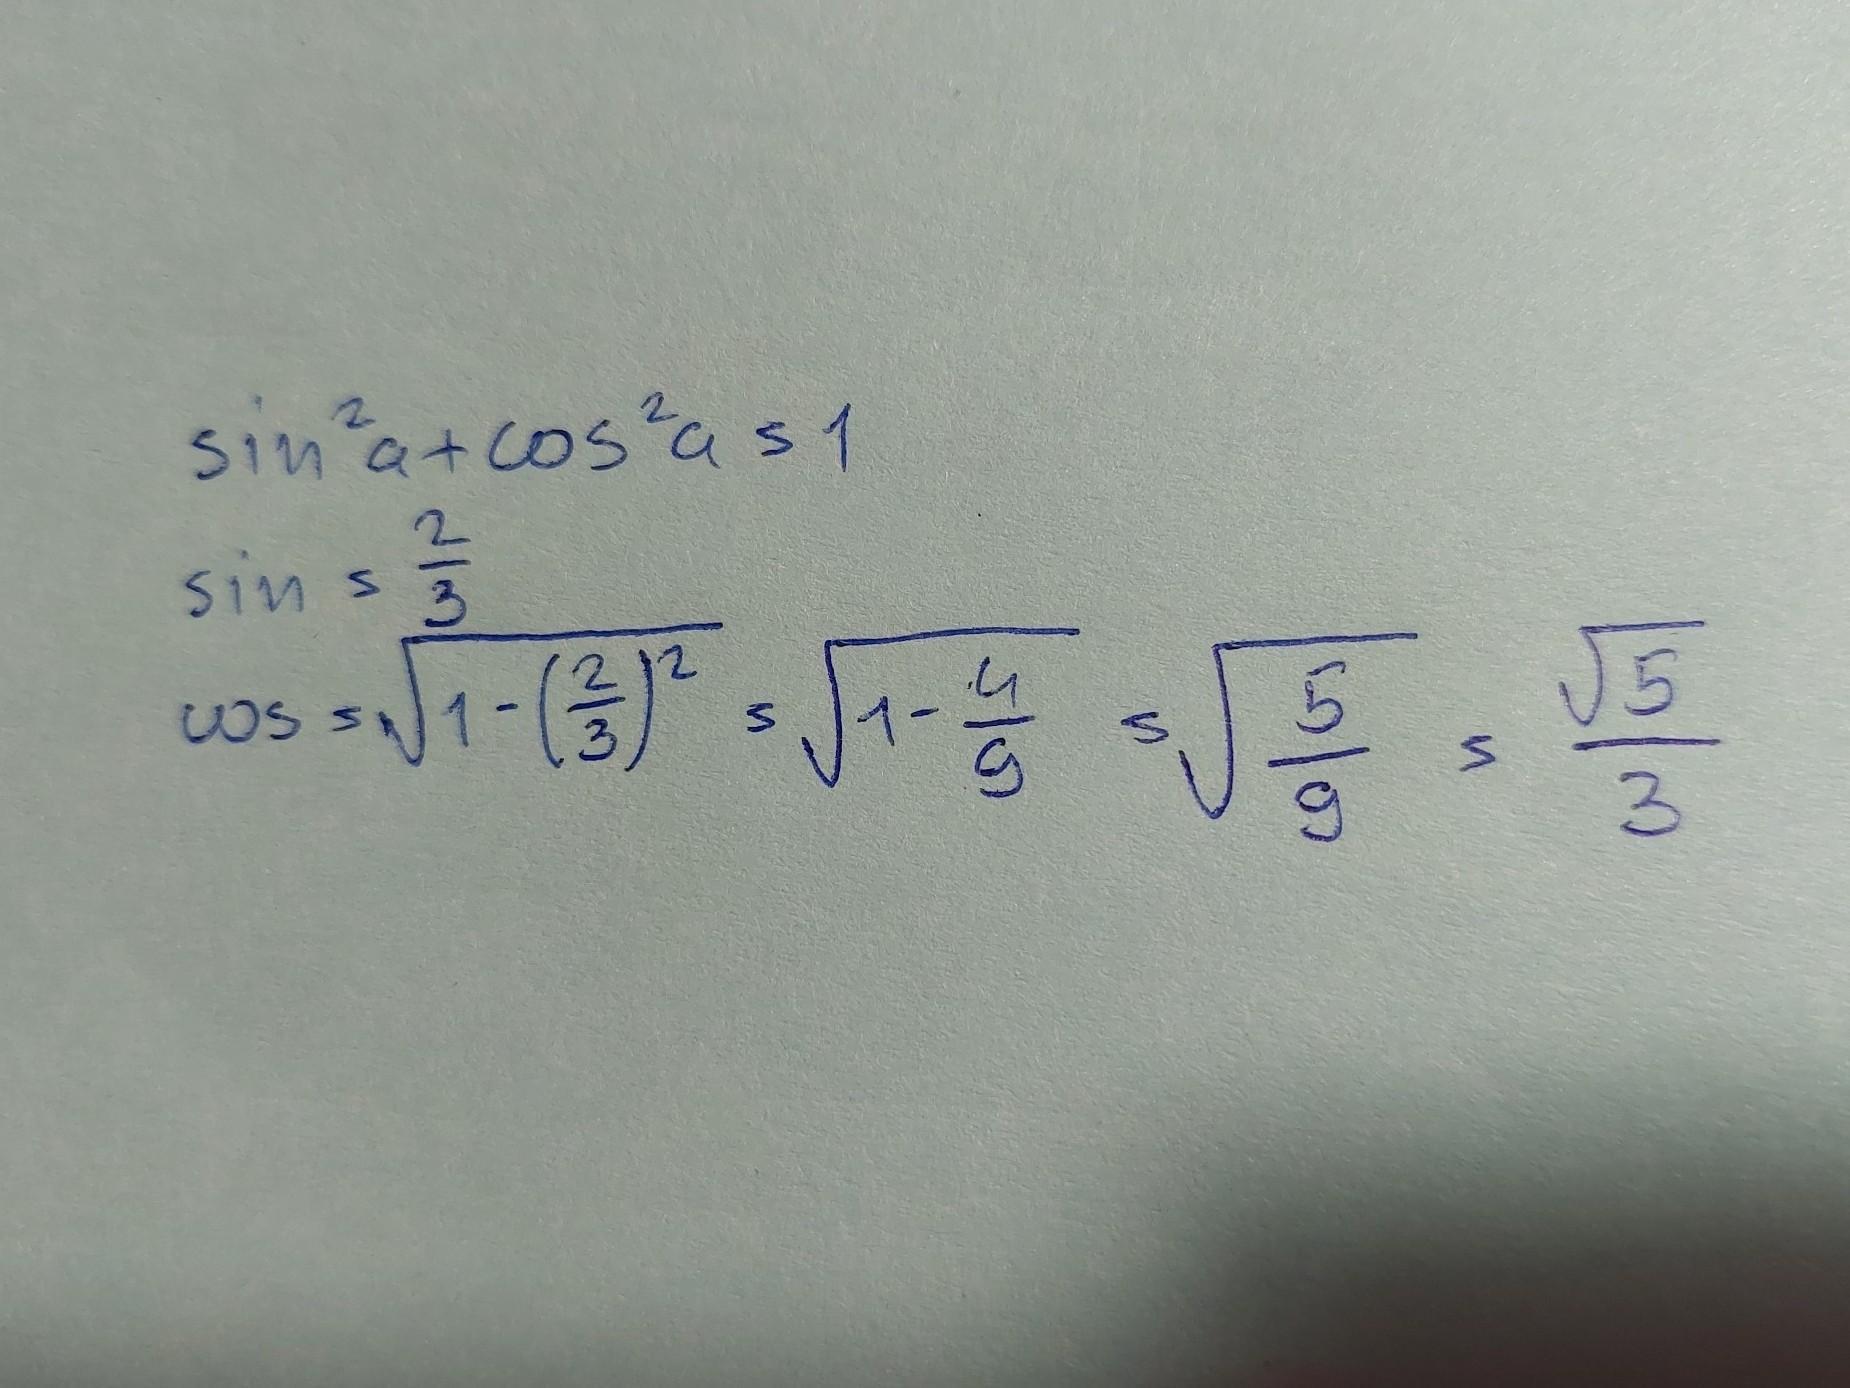 sin²a+cos²a = 1
sin = 2/3
cos = √(1-(2/3)²) = √(1-4/9) = √(5/9) = √5/3